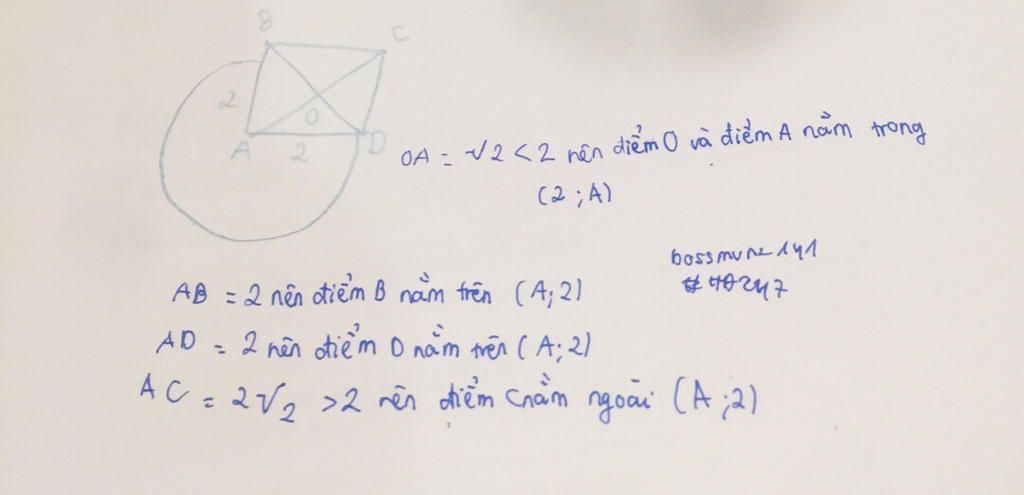 B
C
2
O
A
2
D
OA = √2 < 2 nên điểm O và điểm A nằm trong
(2 ; A)
AB = 2 nên điểm B nằm trên (A; 2)
AD = 2 nên điểm D nằm trên (A; 2)
AC = 2√2 > 2 nên điểm C nằm ngoài (A ; 2)